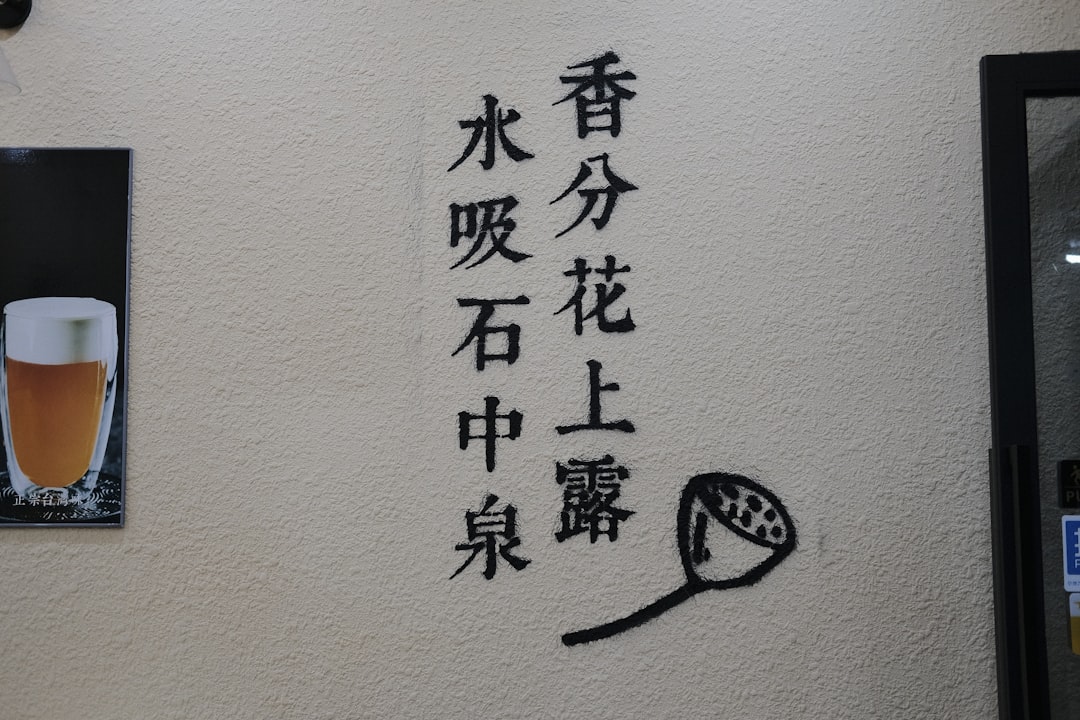 香分花上露
水吸石中泉
正宗台灣味